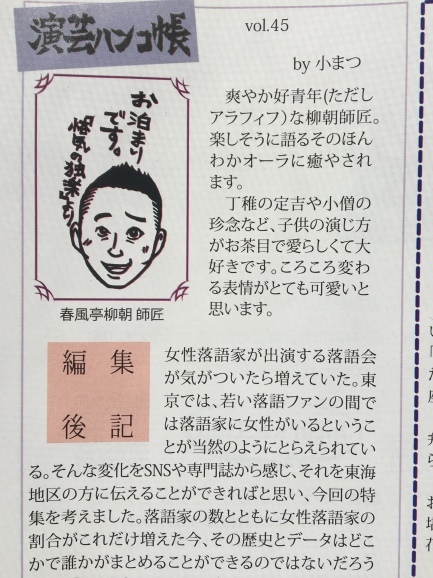 演芸ハンコ帳
vol.45
by 小まつ
お泊まり
です。
「悋気の独楽」より
春風亭柳朝 師匠
爽やか好青年(ただし
アラフィフ)な柳朝師匠。
楽しそうに語るそのほん
わかオーラに癒やされ
ます。
丁稚の定吉や小僧の
珍念など、子供の演じ方
がお茶目で愛らしくて大
好きです。ころころ変わ
る表情がとても可愛いと
思います。
編集
後記
女性落語家が出演する落語会
が気がついたら増えていた。東
京では、若い落語ファンの間で
は落語家に女性がいるというこ
とが当然のようにとらえられてい
る。そんな変化をSNSや専門誌から感じ、それを東海
地区の方に伝えることができればと思い、今回の特
集を考えました。落語家の数とともに女性落語家の
割合がこれだけ増えた今、その歴史とデータはどこ
かで誰かがまとめることができるのではないだろう